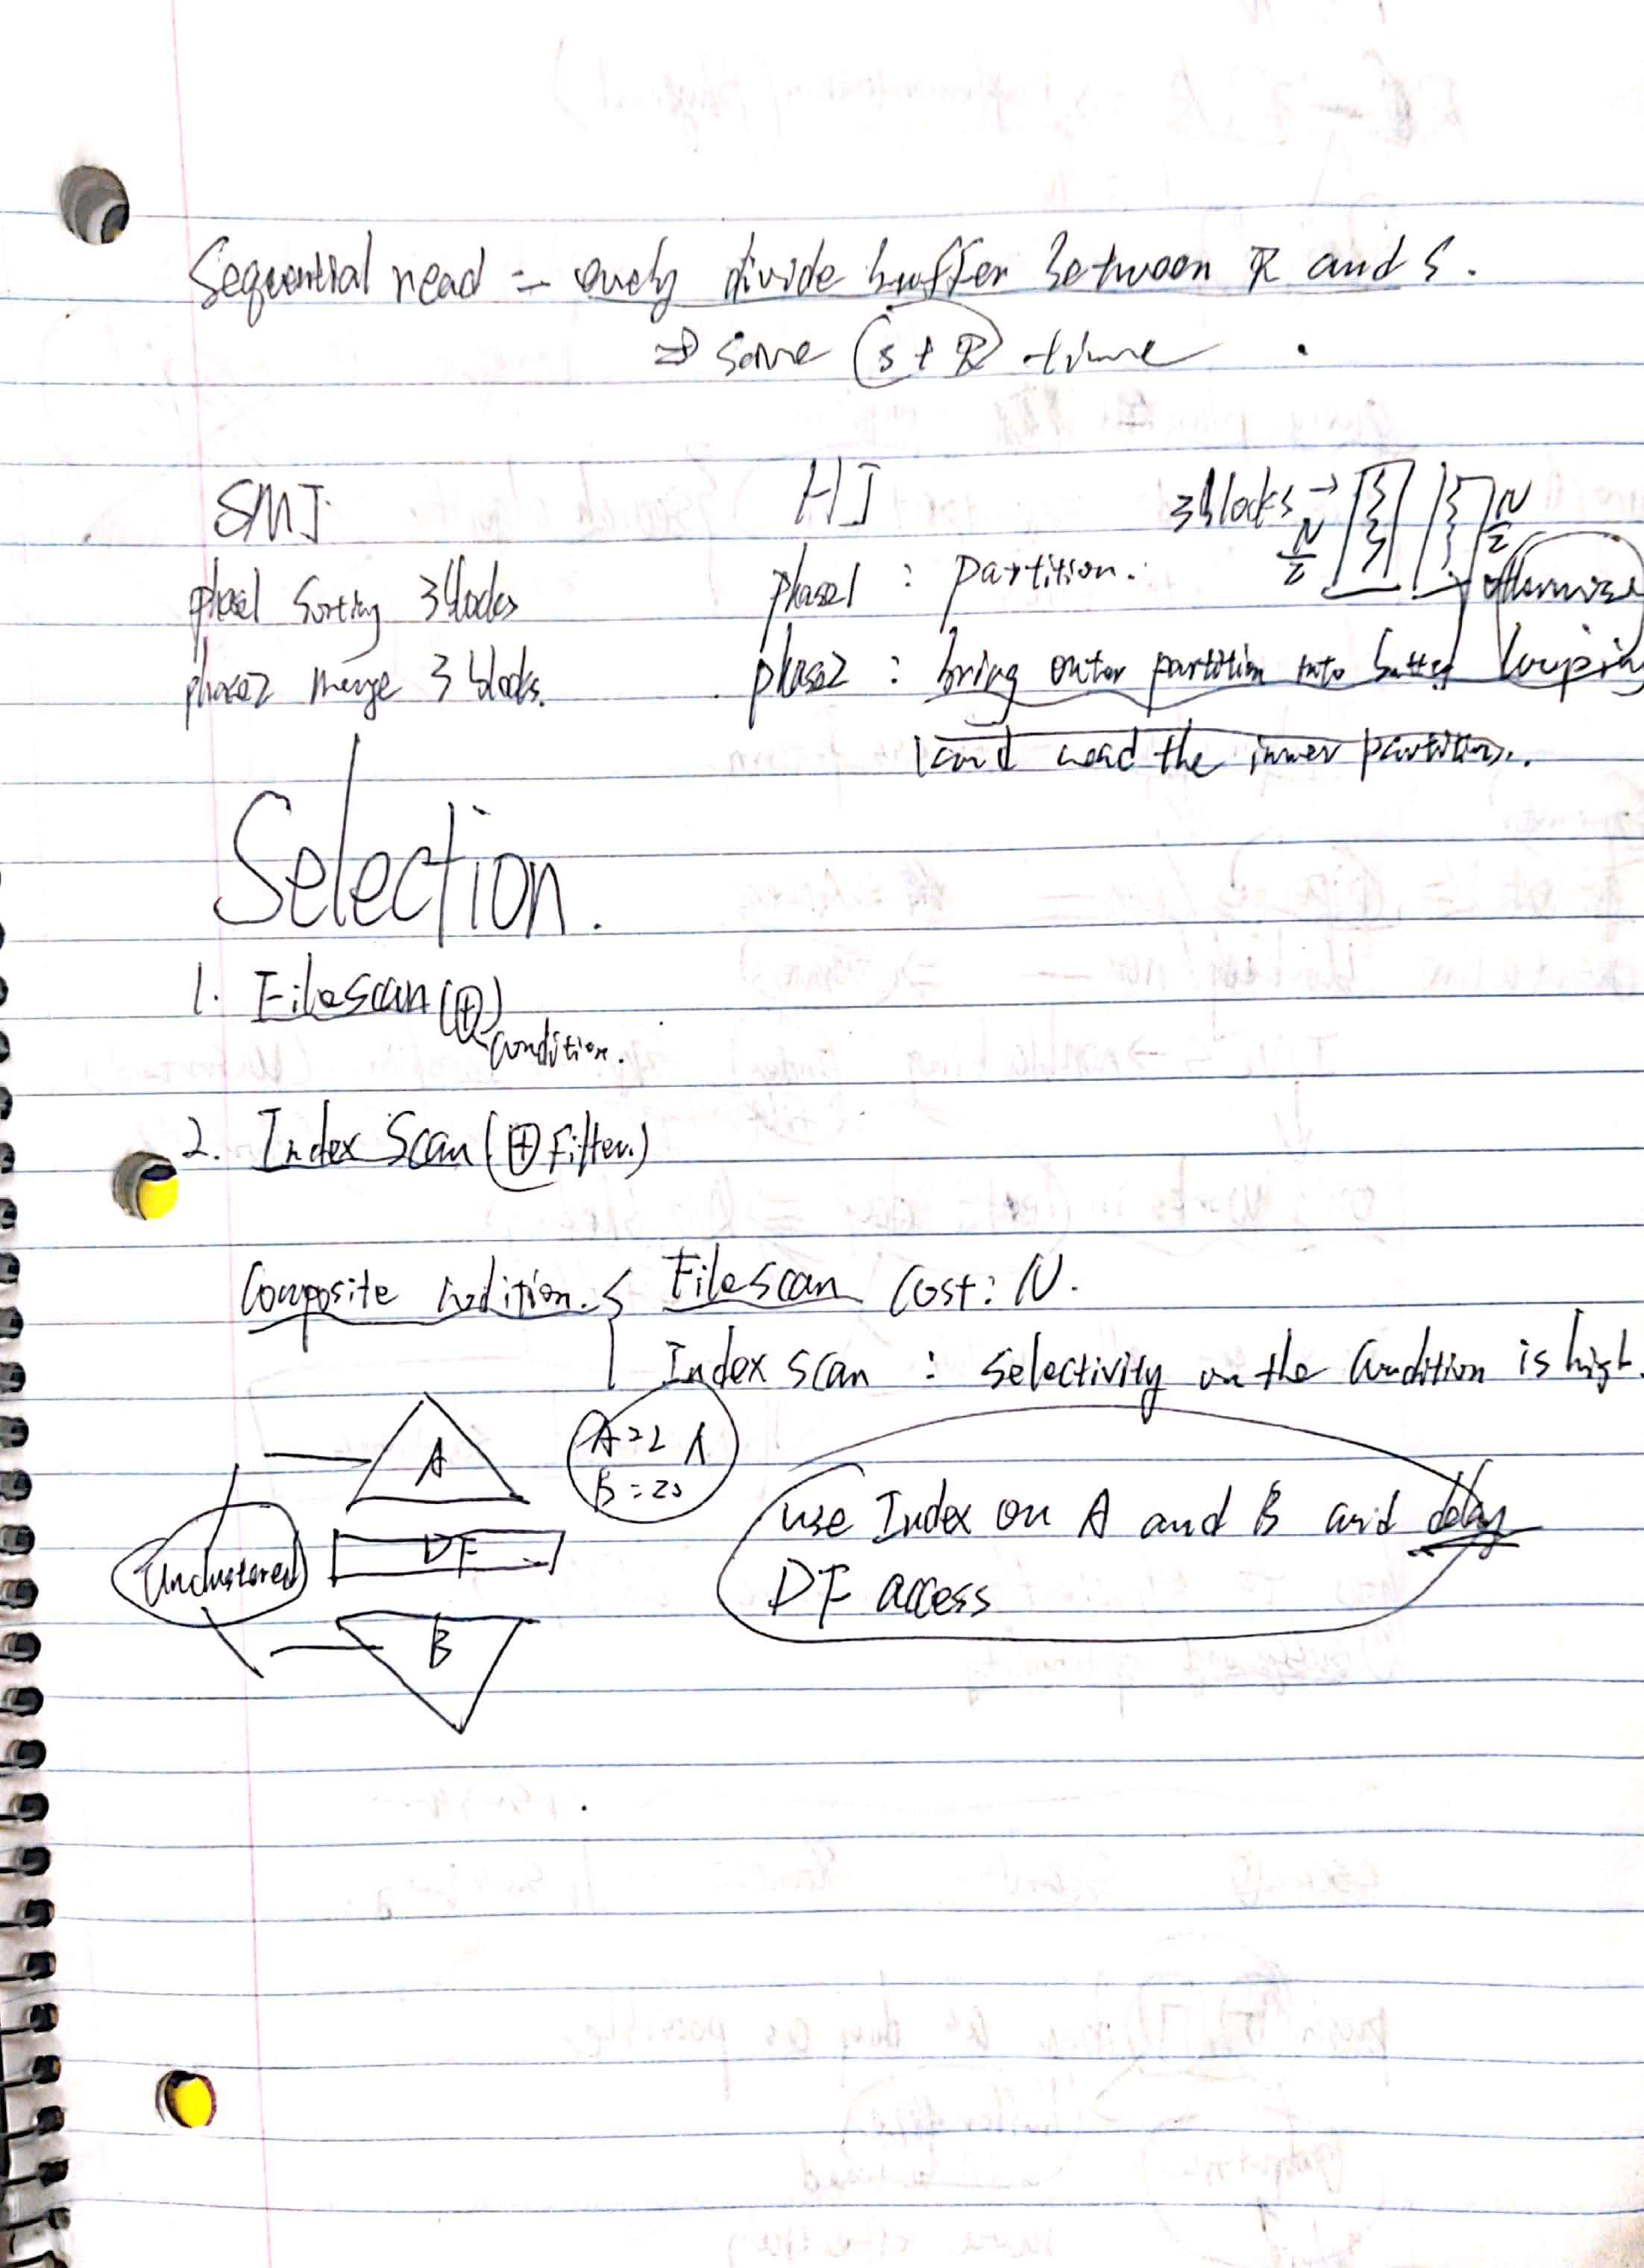 Sequential read = evenly divide buffer between R and S.
⇒ save (S + R) time
SMJ
phase1 sorting 3 blocks
phase2 merge 3 blocks.
HJ
3 blocks →
N/2
N/2
phase1 : partition.
otherwise
looping
phase2 : bring outer partition into buffer
and read the inner partition.
Selection.
1. File scan (+)
condition.
2. Index Scan (+ Filter.)
Composite condition. { File scan cost: N.
Index scan : selectivity on the condition is high.
A
A=2 ∧
B=20
Unclustered
DF
B
use Index on A and B and delay
DF access